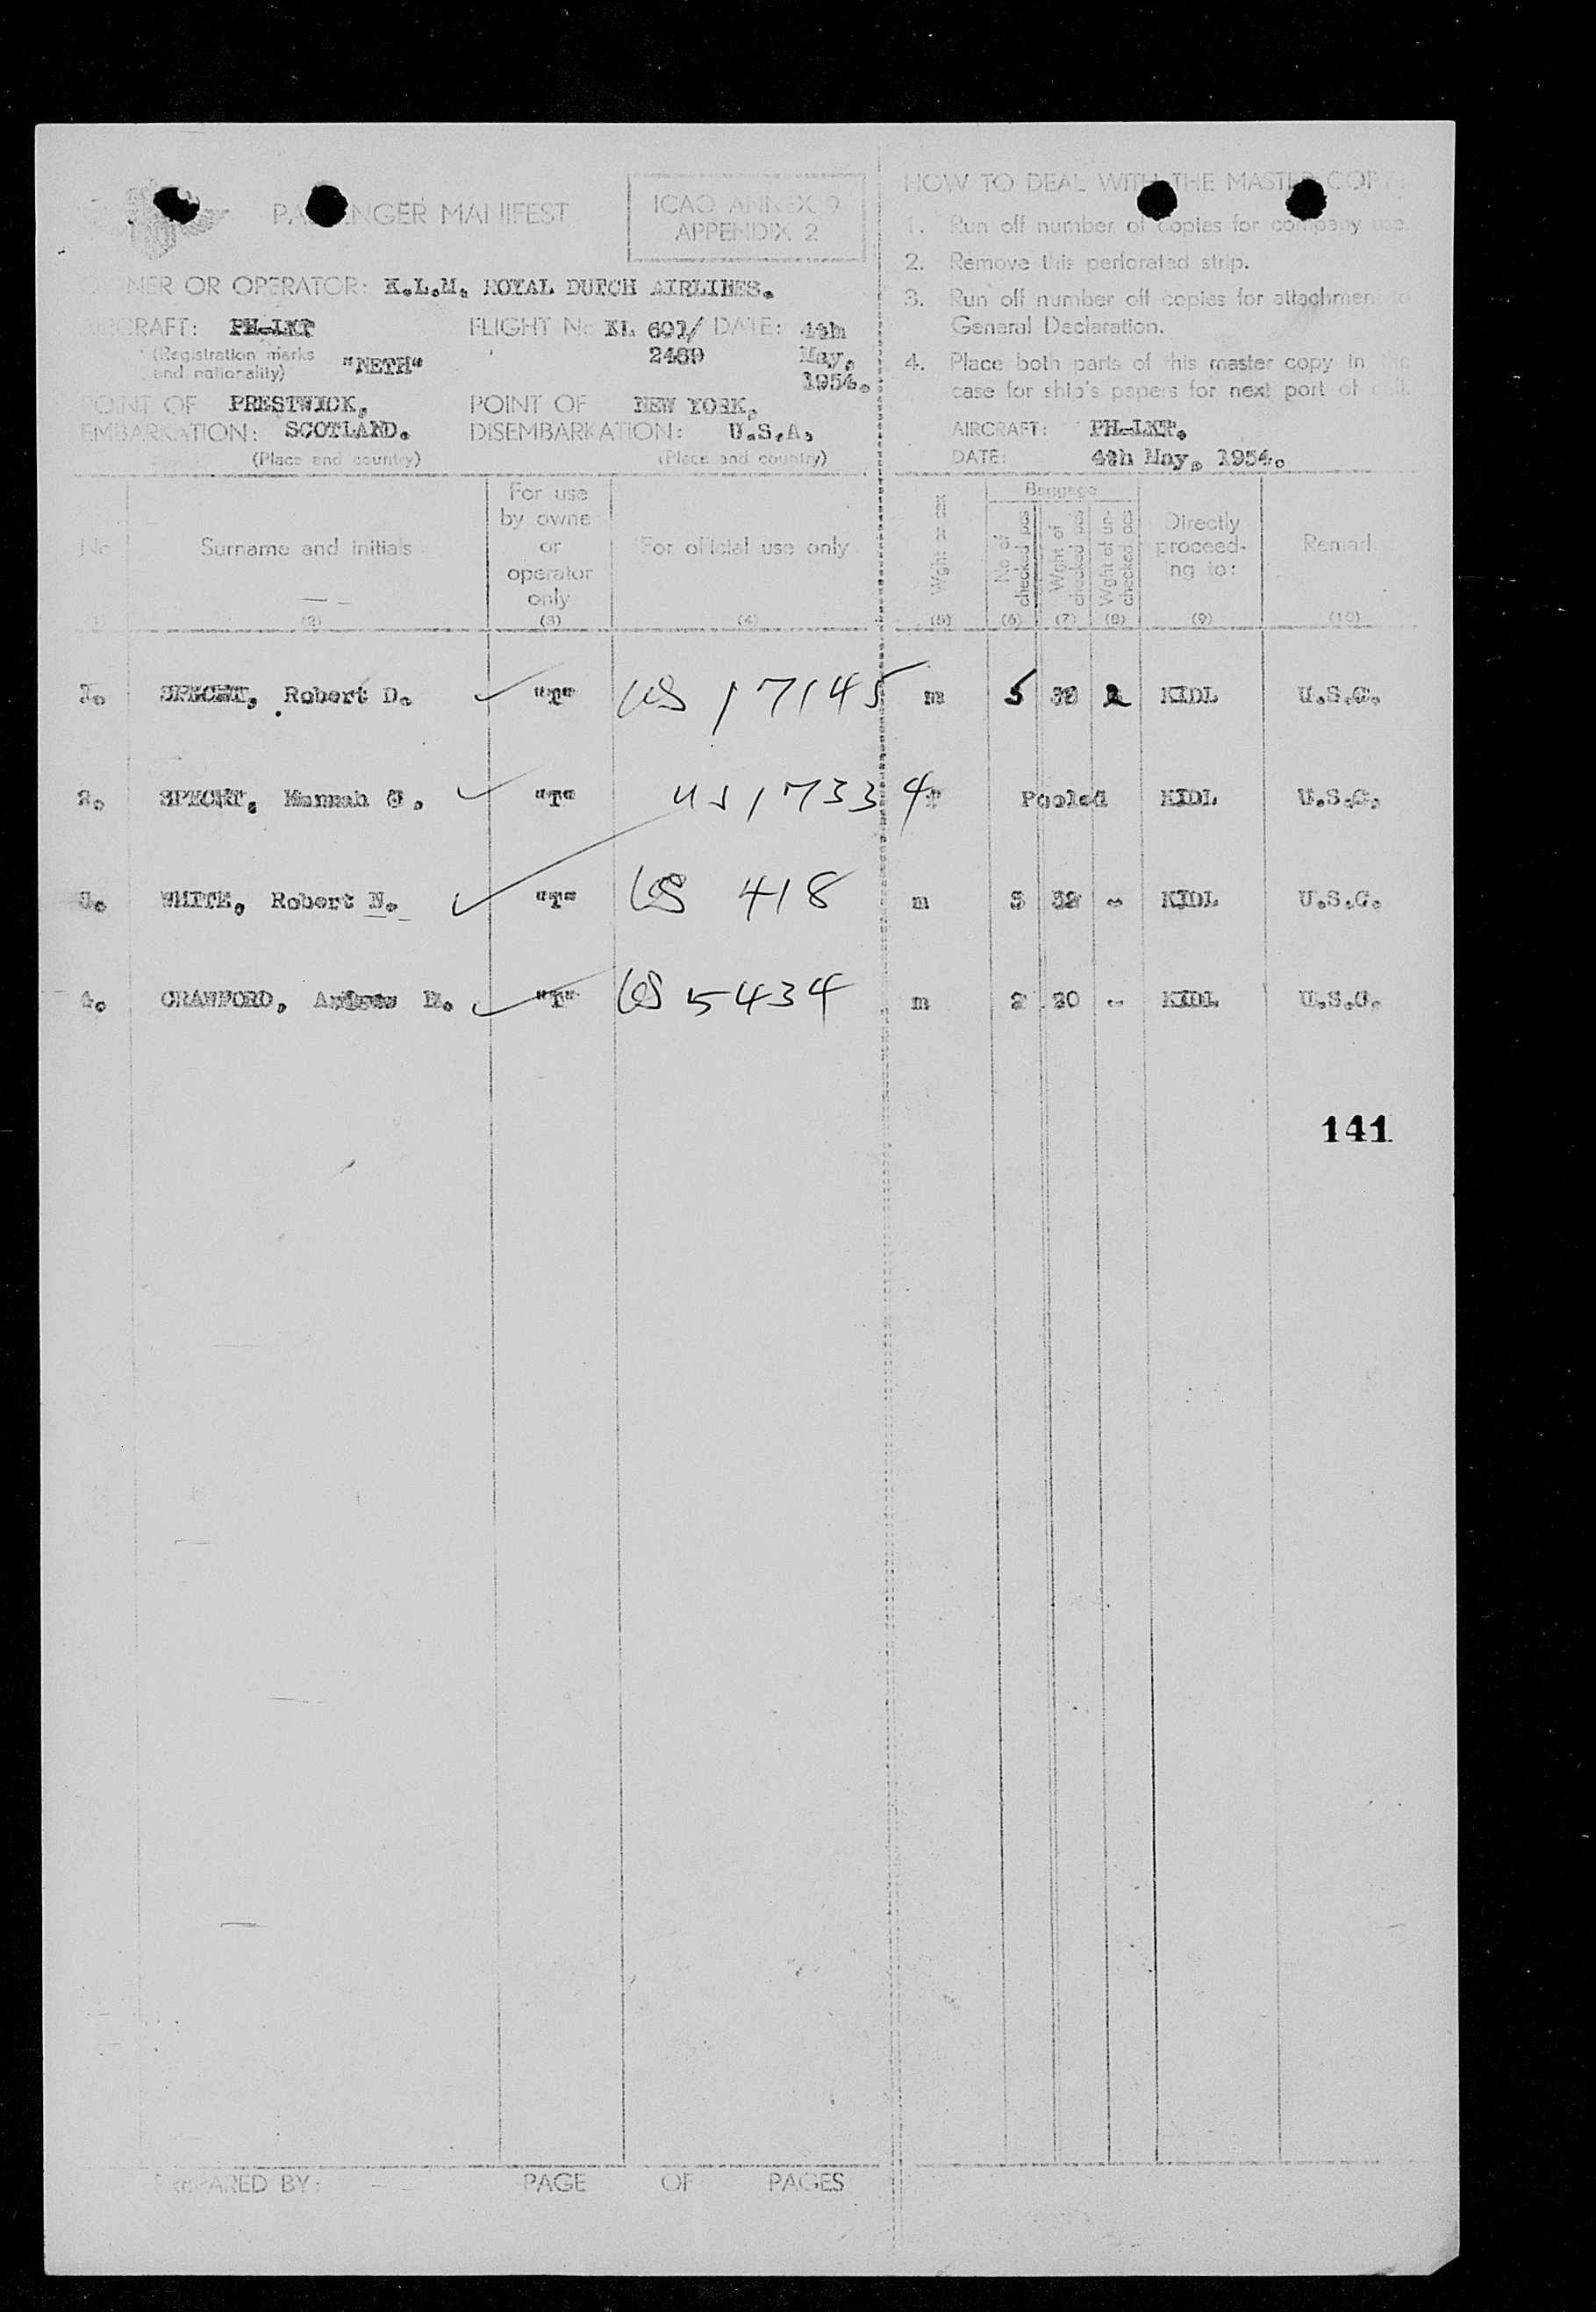 PASSENGER MANIFEST
ICAO ANNEX 9
APPENDIX 2
OWNER OR OPERATOR: K.L.M. ROYAL DUTCH AIRLINES.
AIRCRAFT: PH-LKT
(Registration marks
and nationality) "NETH"
FLIGHT No KL 601/
2469
DATE: 4th
May,
1954.
POINT OF PRESTWICK,
EMBARKATION: SCOTLAND.
(Place and country)
POINT OF NEW YORK,
DISEMBARKATION: U.S.A.
(Place and country)
HOW TO DEAL WITH THE MASTER COPY:
1. Run off number of copies for company use.
2. Remove this perforated strip.
3. Run off number off copies for attachment to
General Declaration.
4. Place both parts of this master copy in the
case for ship's papers for next port of call.
AIRCRAFT: PH-LKT.
DATE: 4th May, 1954.
No
(1)
Surname and initials
(2)
For use
by owner
or
operator
only
(3)
For official use only
(4)
Wght or sex
(5)
Baggage
No of
checked pcs
(6)
Wght of
checked pcs
(7)
Wght of un-
checked pcs
(8)
Directly
proceed-
ing to:
(9)
Remark
(10)
1. SPECHT, Robert D. "T" US 17145 m 5 2 KIDL U.S.C.
2. SPECHT, Hannah "T" US 17334 f Pooled KIDL U.S.C.
3. WHITE, Robert N. "T" US 418 m 3 - KIDL U.S.C.
4. CRAWFORD, Andrew "T" US 5434 m 2 20 - KIDL U.S.C.
141
PREPARED BY: PAGE OF PAGES